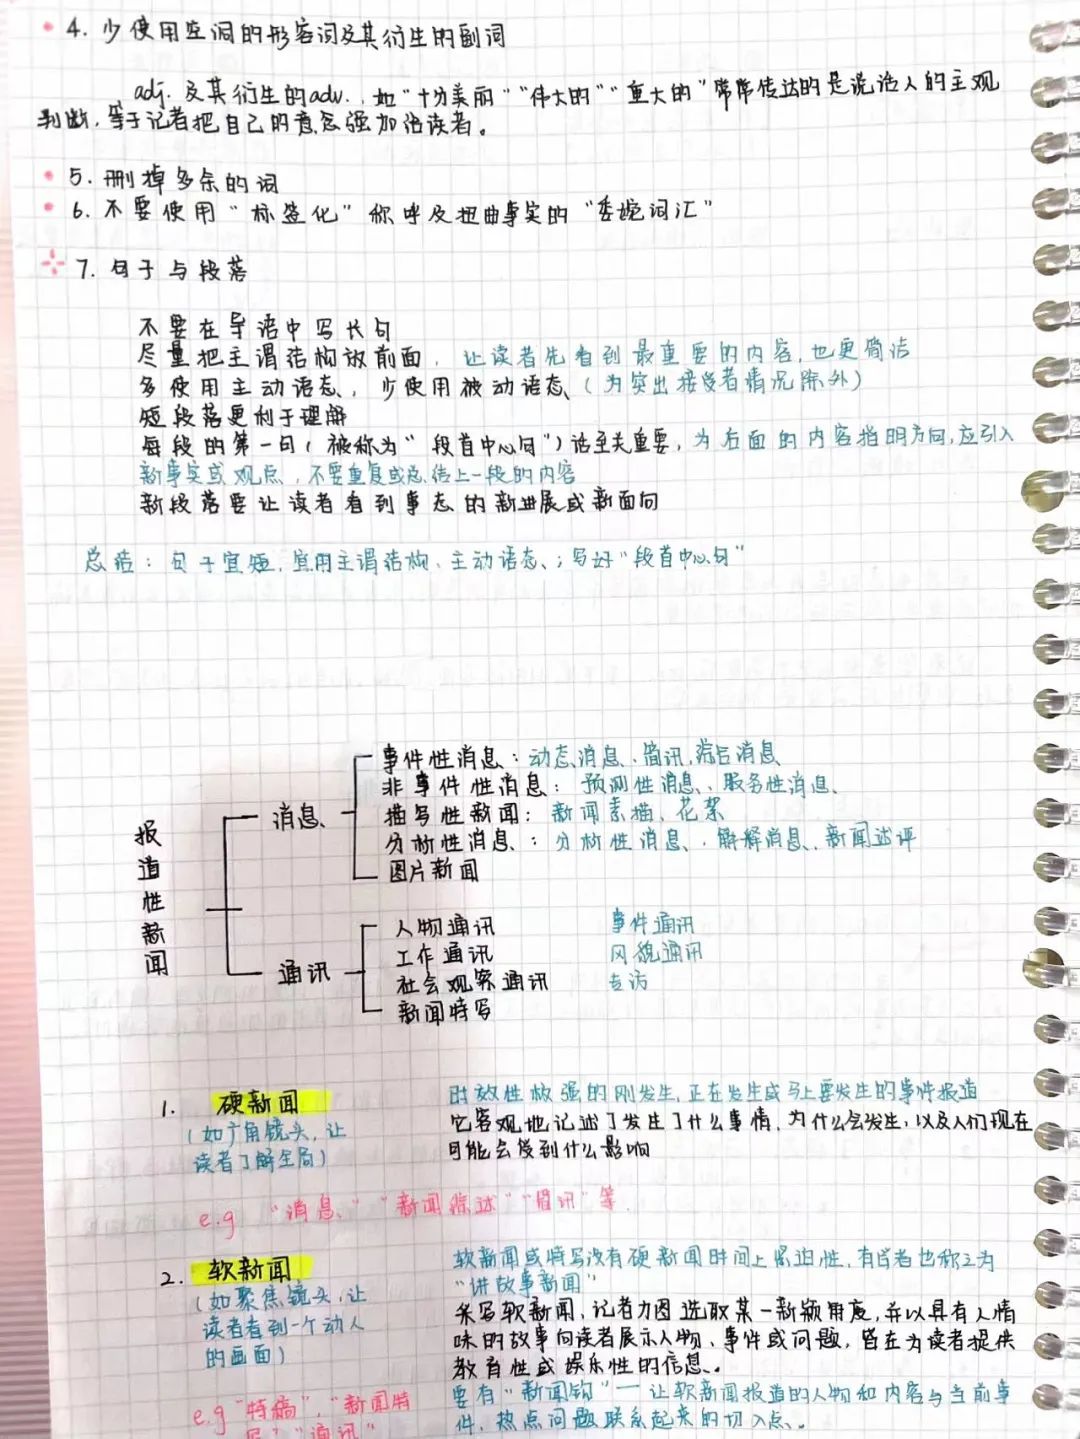 4. 少使用空洞的形容词及其衍生的副词
adj. 及其衍生的adv.，如"十分美丽""伟大的""重大的"常常传达的是说话人的主观
判断，等于记者把自己的意念强加给读者。
5. 删掉多余的词
6. 不要使用"标签化"称呼及扭曲事实的"委婉词汇"
7. 句子与段落
不要在导语中写长句
尽量把主谓结构放前面，让读者先看到最重要的内容，也更简洁
多使用主动语态，少使用被动语态（为突出接受者情况除外）
短段落更利于理解
每段的第一句（被称为"段首中心句"）至关重要，为后面的内容指明方向，应引入
新事实或观点，不要重复或总结上一段的内容
新段落要让读者看到事态的新进展或新面向
总结：句子宜短，宜用主谓结构、主动语态；写好"段首中心句"
报道性新闻
消息
事件性消息：动态消息、简讯、综合消息
非事件性消息：预测性消息、服务性消息
描写性新闻：新闻素描、花絮
分析性消息：分析性消息、解释消息、新闻述评
图片新闻
通讯
人物通讯 事件通讯
工作通讯 风貌通讯
社会观察通讯 专访
新闻特写
1. 硬新闻 时效性极强的刚发生，正在发生或马上要发生的事件报道
（如广角镜头，让 它客观地记述了发生了什么事情，为什么会发生，以及人们现在
读者了解全局） 可能会受到什么影响
e.g "消息""新闻综述""简讯"等
2. 软新闻 软新闻或特写没有硬新闻时间上紧迫性，有学者也称之为
（如聚焦镜头，让 "讲故事新闻"
读者看到一个动人 采写软新闻，记者力图选取某一新颖角度，并以具有人情
的画面） 味的故事向读者展示人物、事件或问题，旨在为读者提供
教育性或娱乐性的信息。
e.g "特稿"，"新闻特 要有"新闻钩"一让软新闻报道的人物和内容与当前事
写""通讯" 件，热点问题联系起来的切入点。